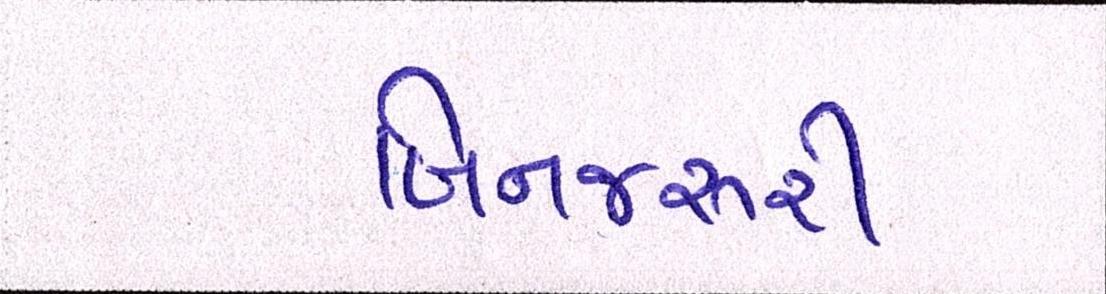 બિનજરૂરી